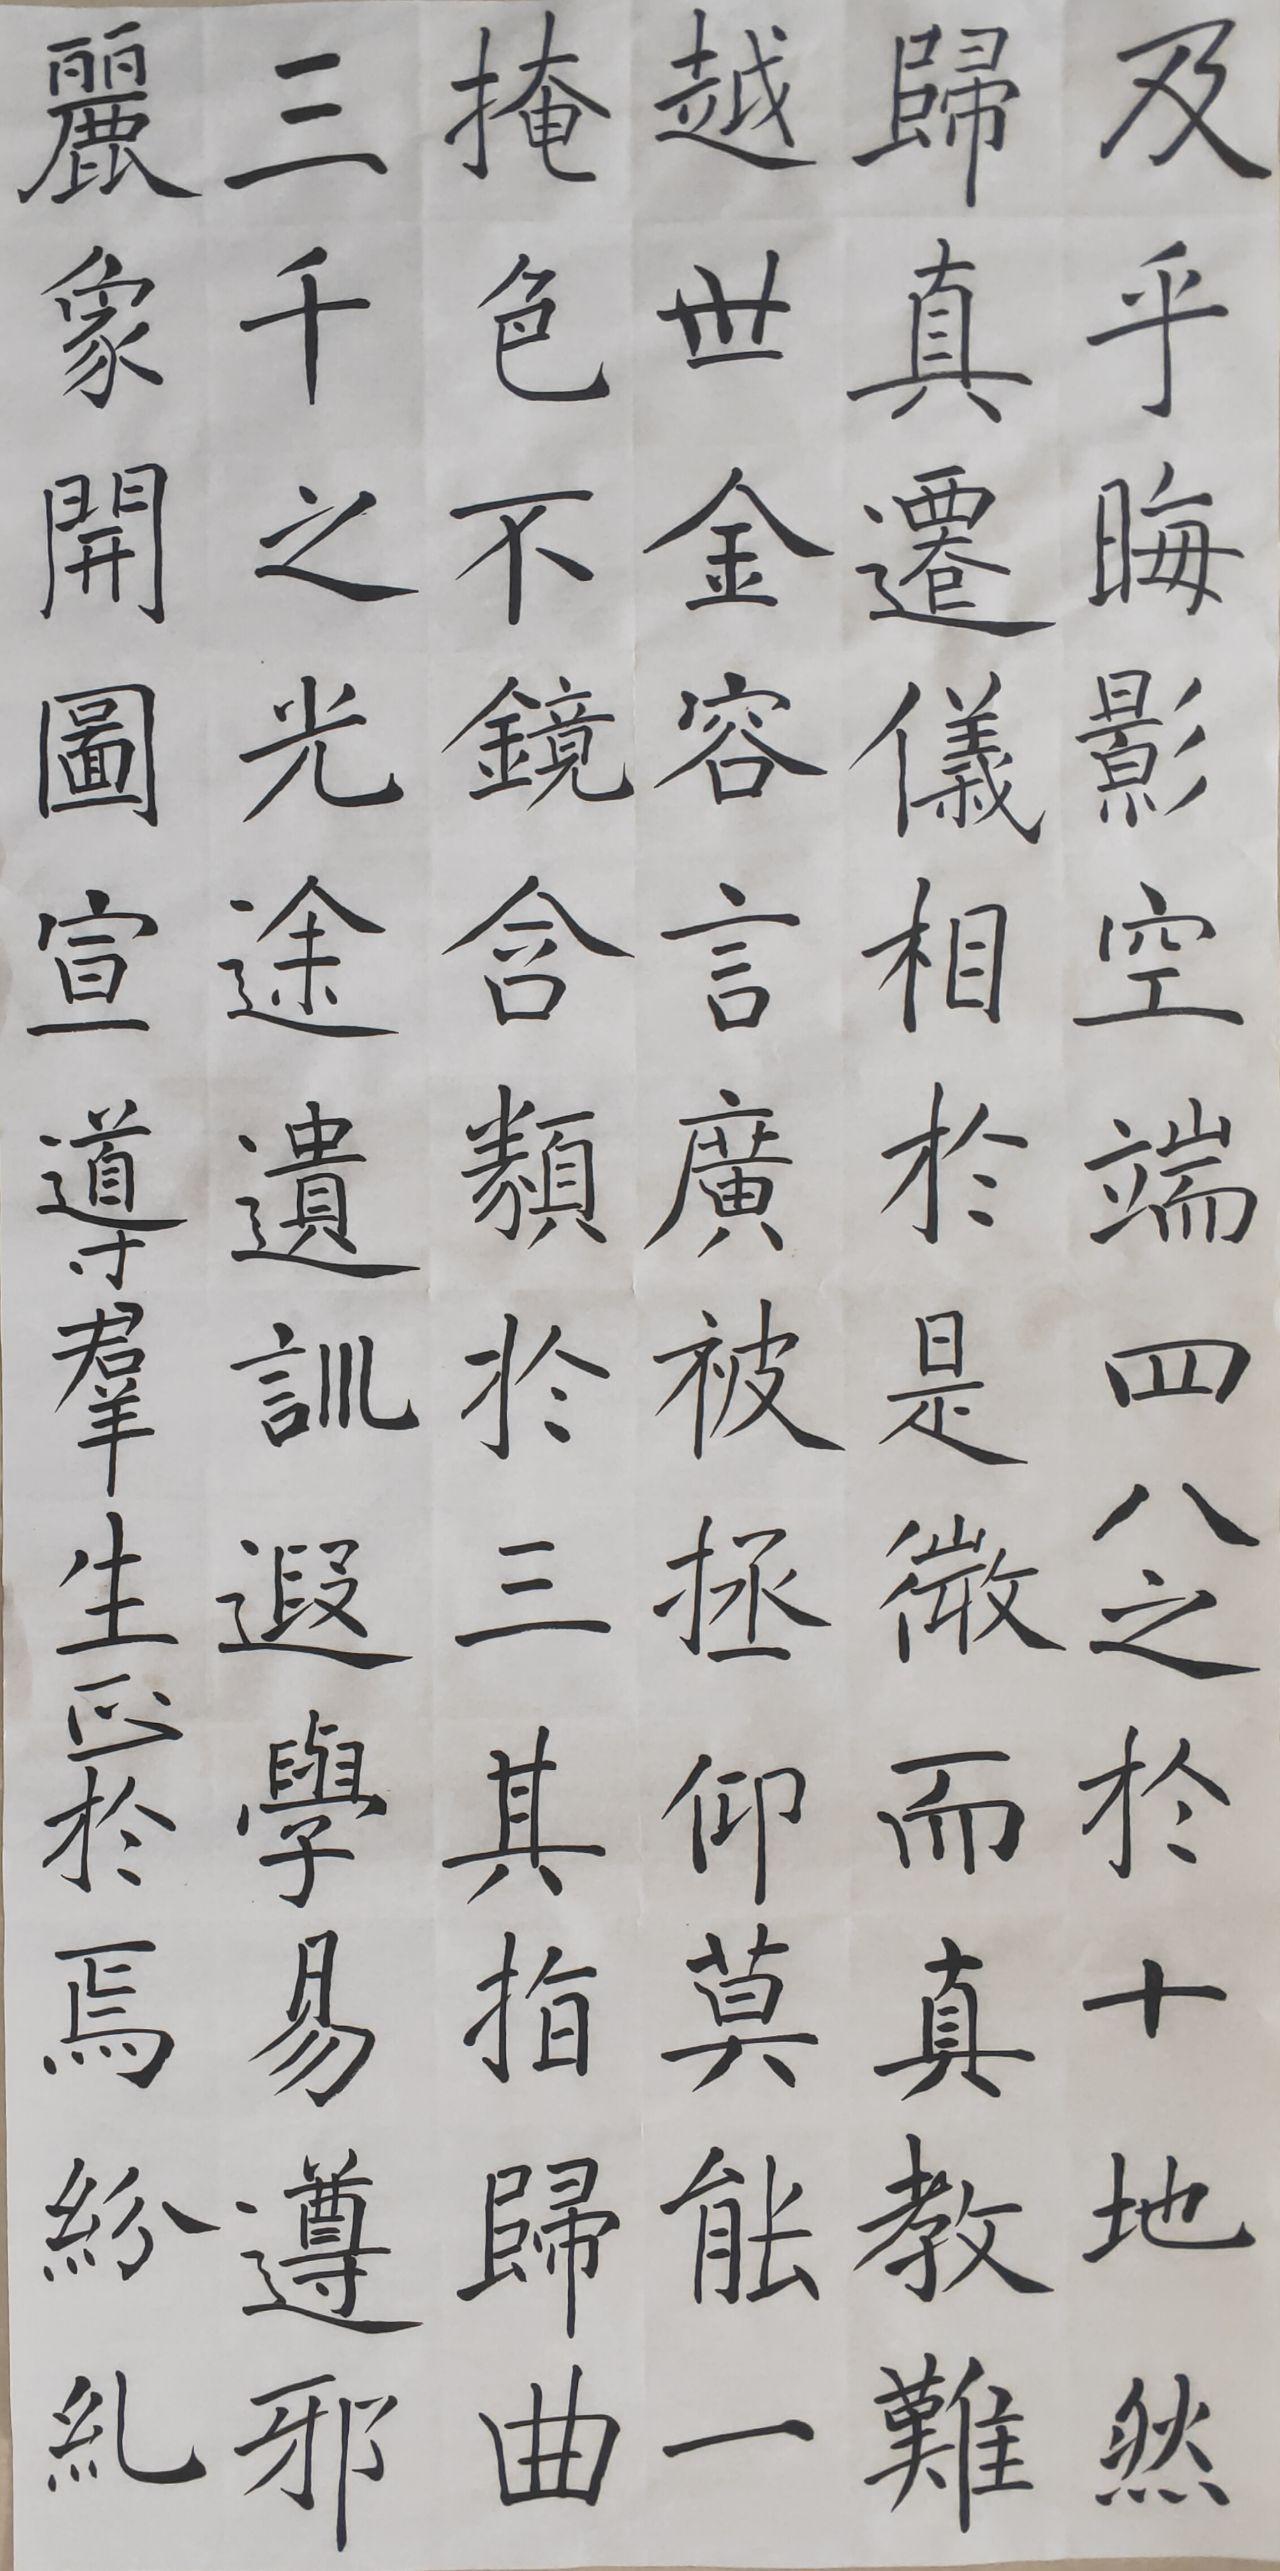 及乎晦影空端四八之於十地然
歸真遷儀相於是微而真教難
越世金容言廣被拯仰莫能一
掩色不鏡含類於三其指歸曲
三千之光途遺訓遐學易遵邪
麗象開圖宣導羣生正於焉紛糺